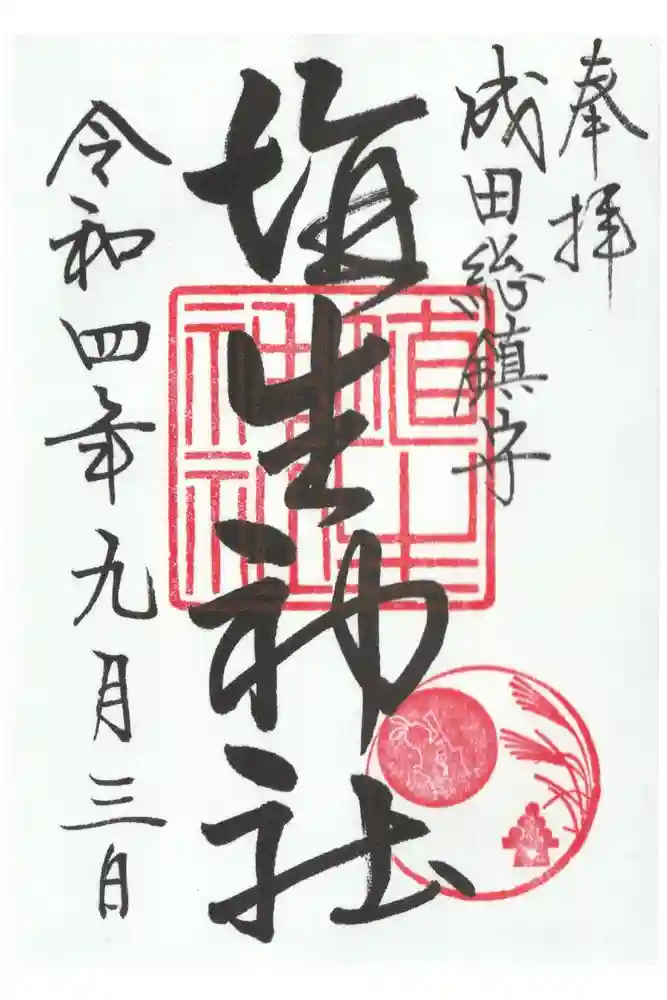 奉拝
成田総鎮守
埴生神社
埴生
神社
令和四年九月三日